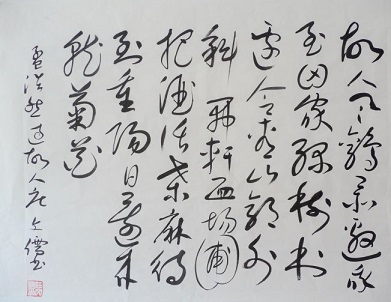 故人具鷄黍邀我
至田家綠樹村
邊合青山郭外
斜開軒面場圃
把酒話桑麻待
到重陽日還來
就菊花
孟浩然過故人莊